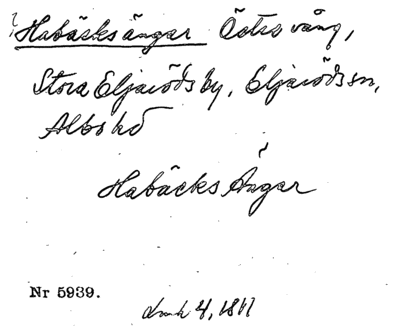 Habäcks ängar Östra vång,
Stora Eljaröds by, Eljaröds sn,
Albo hd
Habäcks Ängar
Nr 5939.
4, 1811